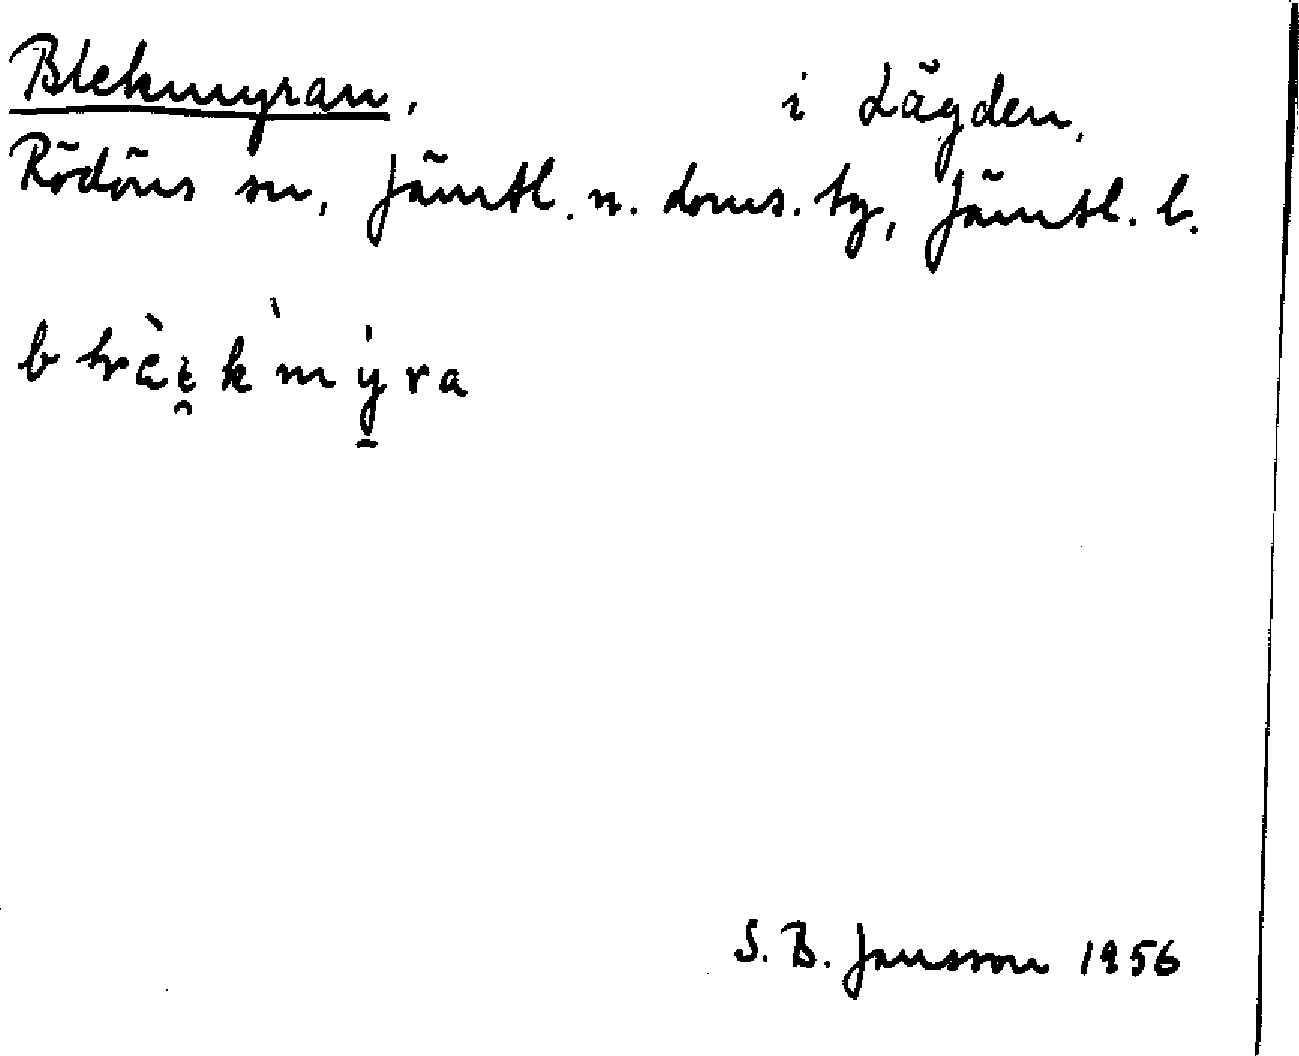 Blekmyran, i Lägden,
Rödöns sn, Jämtl. n. doms. tg, Jämtl. l.
S. B. Jansson 1956